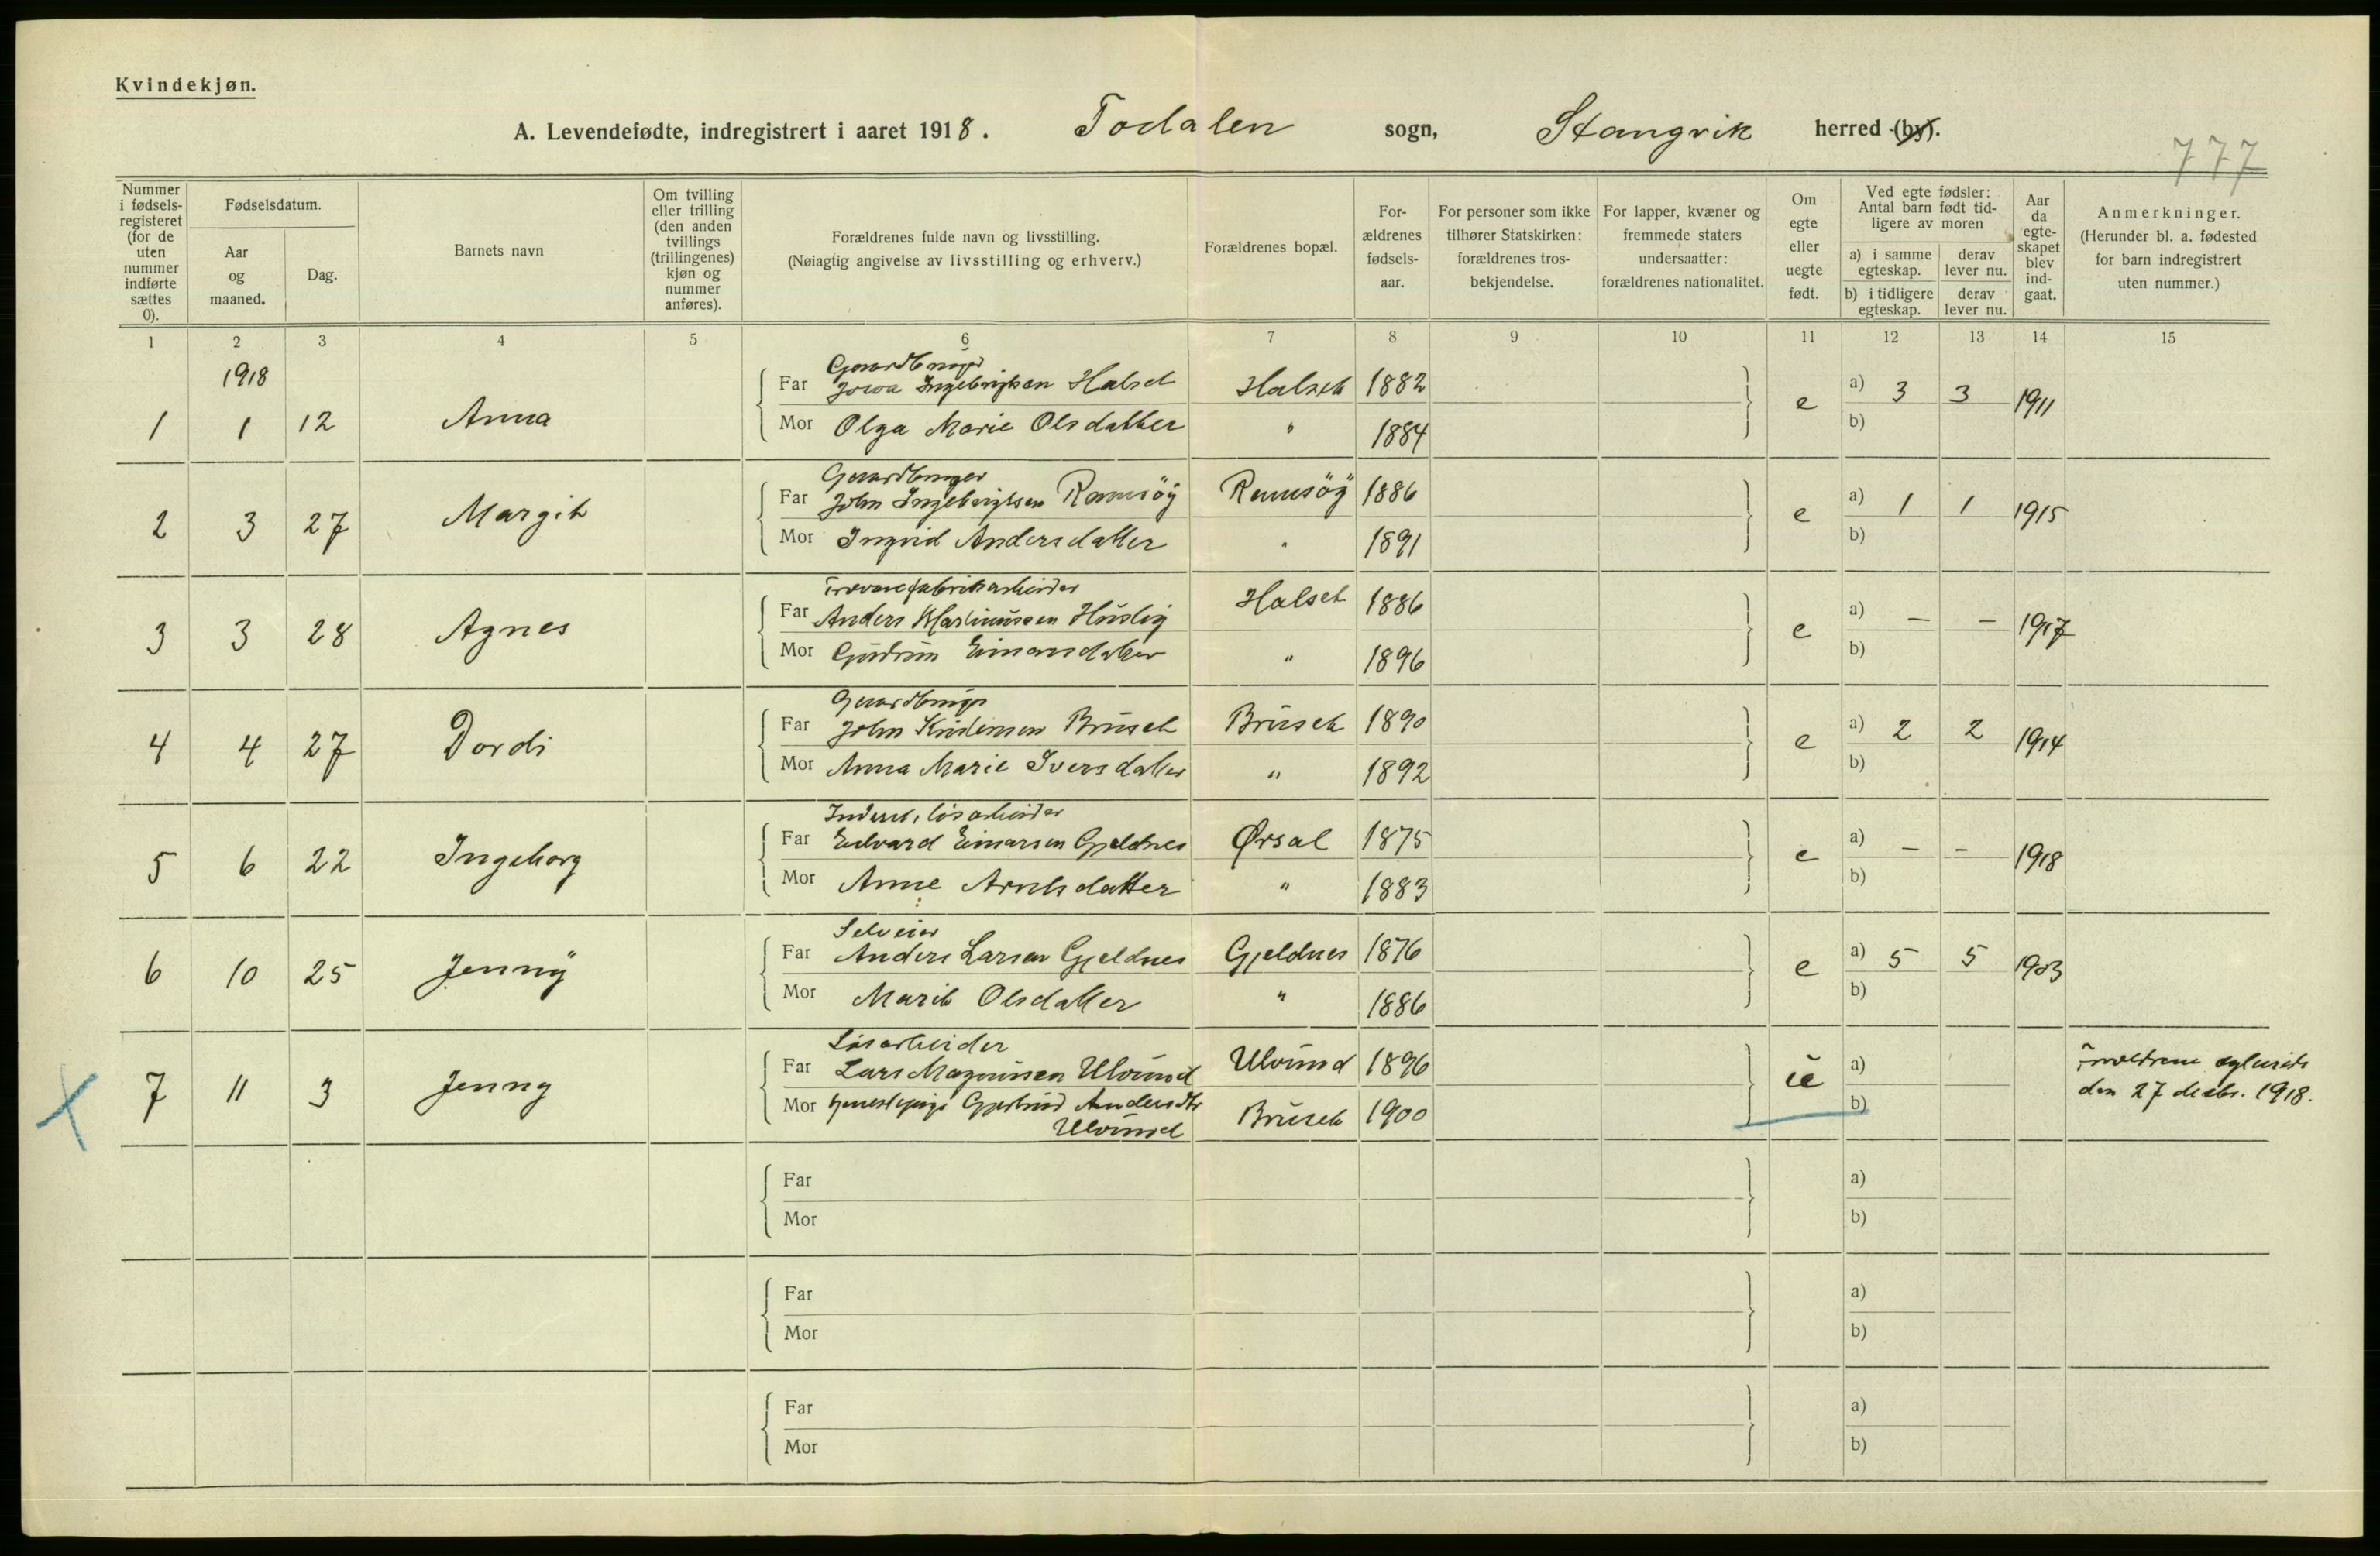 Kvindekjøn.
A. Levendefødte, indregistrert i aaret 1918. Todalen sogn, Stangvik herred (by).
777
Nummer i fødsels-registeret (for de uten nummer indførte sættes 0).
Fødselsdatum.
Aar og maaned.
Dag.
Barnets navn
Om tvilling eller trilling (den anden tvillings (trillingenes) kjøn og nummer anføres).
Forældrenes fulde navn og livsstilling.
(Nøiagtig angivelse av livsstilling og erhverv.)
Forældrenes bopæl.
For-ældrenes fødsels-aar.
For personer som ikke tilhører Statskirken: forældrenes tros-bekjendelse.
For lapper, kvæner og fremmede staters undersaatter: forældrenes nationalitet.
Om egte eller uegte født.
Ved egte fødsler: Antal barn født tid-ligere av moren
a) i samme egteskap. derav lever nu.
b) i tidligere egteskap. derav lever nu.
Aar da egte-skapet blev ind-gaat.
Anmerkninger.
(Herunder bl. a. fødested for barn indregistrert uten nummer.)
1 2 3 4 5 6 7 8 9 10 11 12 13 14 15
1918
Far Ingebrigtsen Halset Halset 1882
1 1 12 Anna e a) 3 3 1911
Mor Olga Marie Olsdatter " 1884 b)
Gaardbruger
Far John Ingebrigtsen Ramsöy Ramsöy 1886
2 3 27 Margit e a) 1 1 1915
Mor Ingrid Andersdatter " 1891 b)
Trævarefabrikarbeider
Far Anders Martinussen Halset 1886
3 3 28 Agnes e a) – – 1917
Mor Gudrun Einarsdatter " 1896 b)
Far John Kristensen Brüset Brüset 1890
4 4 27 Dordi e a) 2 2 1914
Mor Anna Marie Iversdatter " 1892 b)
løsarbeider
Far Edvard Einarsen Gjeldnes Ørsal 1875
5 6 22 Ingeborg e a) – – 1918
Mor Anne Arntsdatter " 1883 b)
Selveier
Far Anders Larsen Gjeldnes Gjeldnes 1876
6 10 25 Jenny e a) 5 5 1903
Mor Marit Olsdatter " 1886 b)
Løsarbeider
Far Lars Magnussen Ulvund Ulvund 1896
7 11 3 Jenny ue a) Forældrene egteviet
den 27 decbr. 1918.
Mor Gjertrud Andersdtr Ulvund Brüset 1900 b)
Far a)
Mor b)
Far a)
Mor b)
Far a)
Mor b)